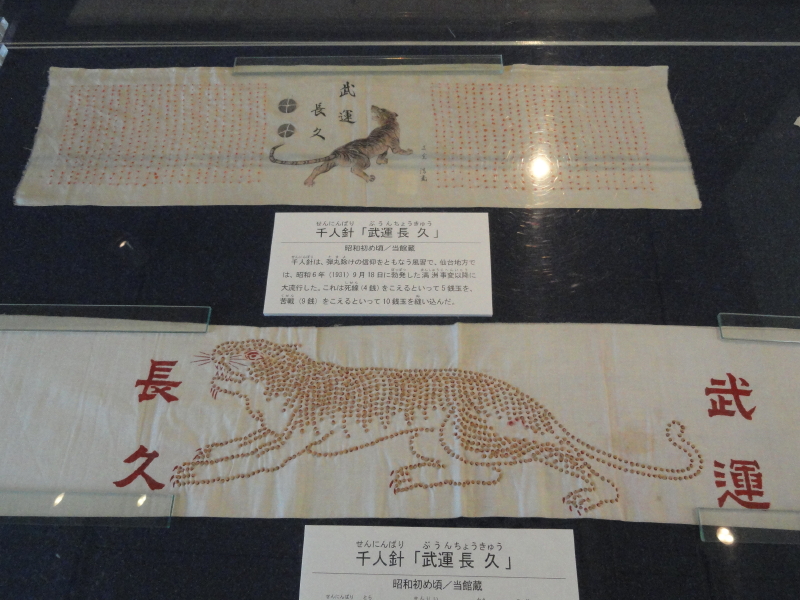 武運
長久
千人針「武運長久」
せんにんばり ぶうんちょうきゅう
昭和初め頃／当館蔵
千人針は、弾丸除けの信仰をともなう風習で、仙台地方で
は、昭和6年（1931）9月18日に勃発した満洲事変以降に
大流行した。これは死線（4銭）をこえるといって5銭玉を、
苦戦（9銭）をこえるといって10銭玉を縫い込んだ。
武運
長久
せんにんばり ぶうんちょうきゅう
千人針「武運長久」
昭和初め頃／当館蔵